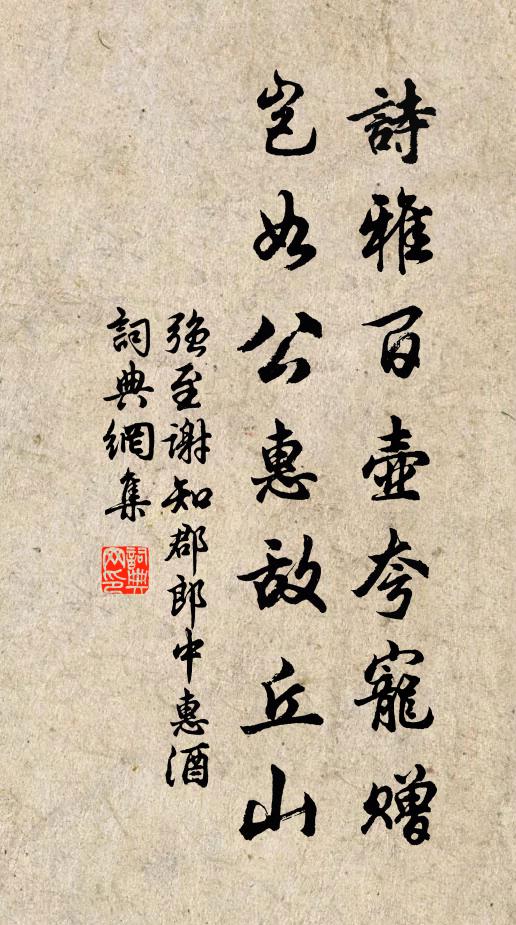 詩雅百壺夸寵贈
豈如公惠敵丘山
強至謝知郡郎中惠酒
詞典網集
詞典
网印